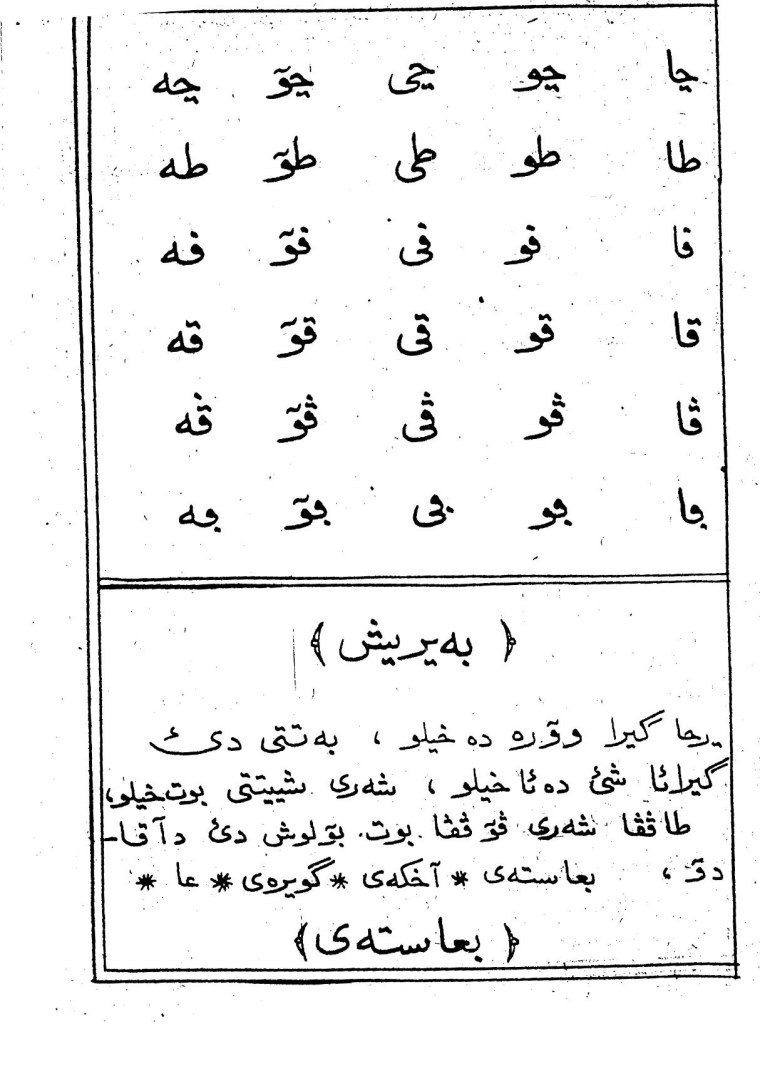 چا چو چی چوٓ چه
طا طو طی طوٓ طه
فا فو فی فوٓ فه
قا قو قی قوٓ قه
ڤا ڤو ڤی ڤوٓ ڤه
ڢا ڢو ڢی ڢوٓ ڢه
﴿ بەیریش ﴾
گیرا ووٓرە دە خیلو ، بە تتی دئ
گیرائا شئ دە ئا خیلو ، شەرێ شییتتی بوت خیلو،
طاڤڤا شەرێ ڤوٓ ڤڤا بوت. بوٓلوش دئ دآقا-
دوٓ ، بعاستەی * آخکەی * گویرەی * عا *
﴿ بعاستەی ﴾